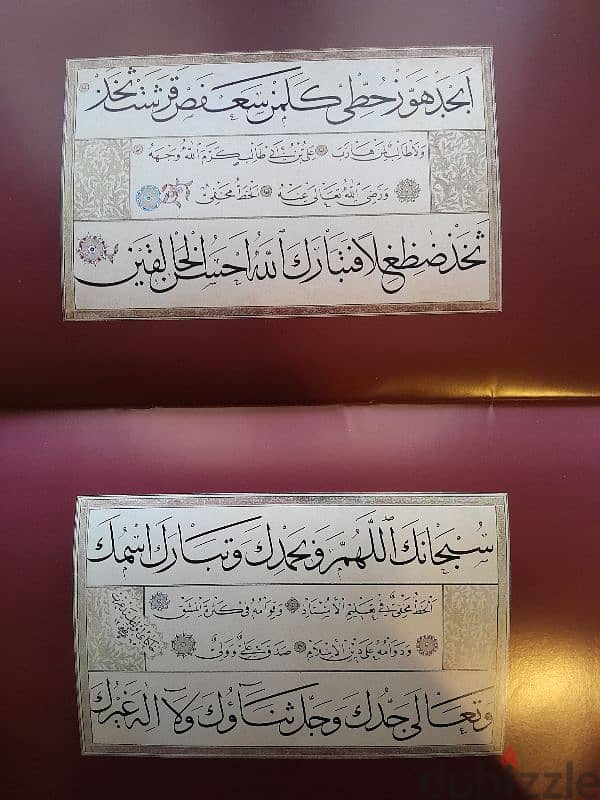 ابجد هوز حطي كلمن سعفص قرشت ثخذ
ولا طالب علي بن ابي طالب كرم الله وجهه
ورضي الله تعالى عنه الخط مخفي
ثخذ ضظغ لا فتبارك الله احسن الخالقين
سبحانك اللهم وبحمدك وتبارك اسمك
الخط مخفي في تعليم الاستاد وقوامه في كثرة المشق
ودوامه على دين الاسلام صدق علي ولي
وتعالى جدك وجل ثناؤك ولا اله غيرك
dubizzle